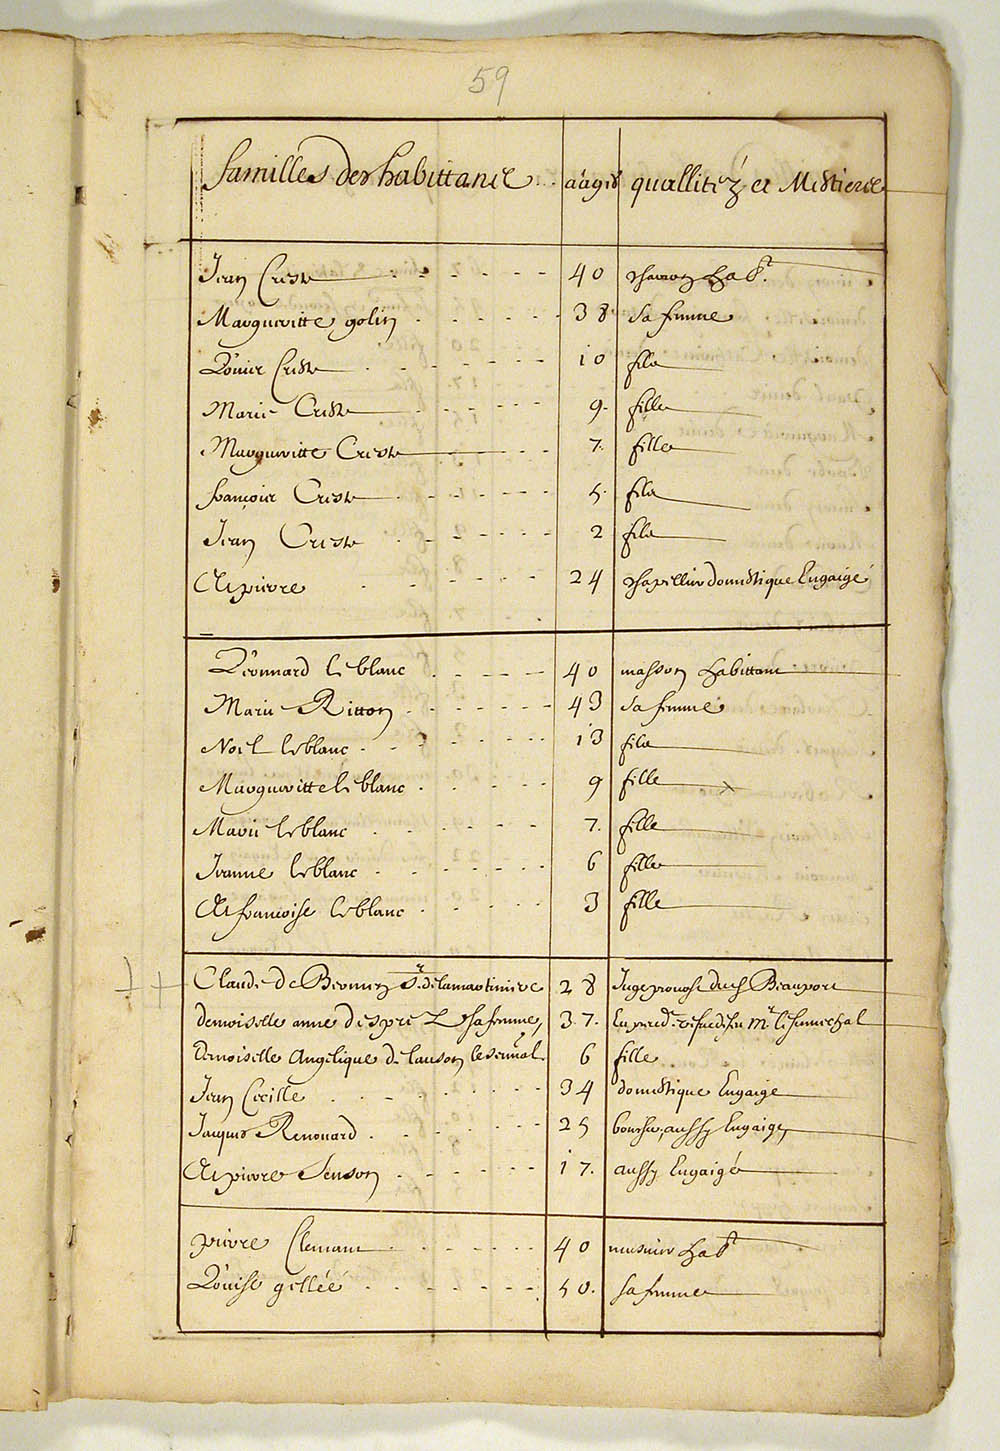 59
familles des habittans aâgis quallitéz et Mestiers
Jean Creste 40 charon habt.
Margueritte golin 38 sa femme
Louis Creste 10 fils
Marie Creste 9. fille
Margueritte Creste 7. fille
françois Creste 5. fils
Jean Creste 2 fils
pierre 24 chapellier domestique Engaigé
Léonnard leblanc 40 masson habittant
Marie Ritton 43 sa femme
Noel leblanc 13 fils
Marguerittte leblanc 9 fille
Marie leblanc 7. fille
Jeanne leblanc 6 fille
Et francoise leblanc 3 fille
Claude De Bermen Sr. de lamartiniere 28 Juge prevost de Beauport
demoiselle anne despréz sa femme, 37. Mr le sennechal
Demoiselle Angelique de lauson le sennal. 6 fille
Jean Cecille 34 domestique Engaigé
Jacques Renouard 25 aussy Engaigé,
Et pierre Senson 17. aussy Engaigé
pierre Clemant 40 musnier habt
Louise gellée 50. sa femme